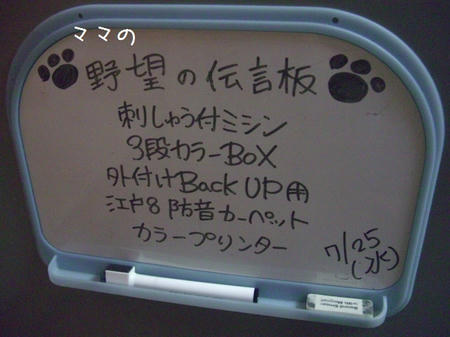 ママの
野望の伝言板
刺しゅう付ミシン
3段カラーBOX
外付けBack UP用
江戸8 防音カーペット
カラープリンター
7/25
(水)